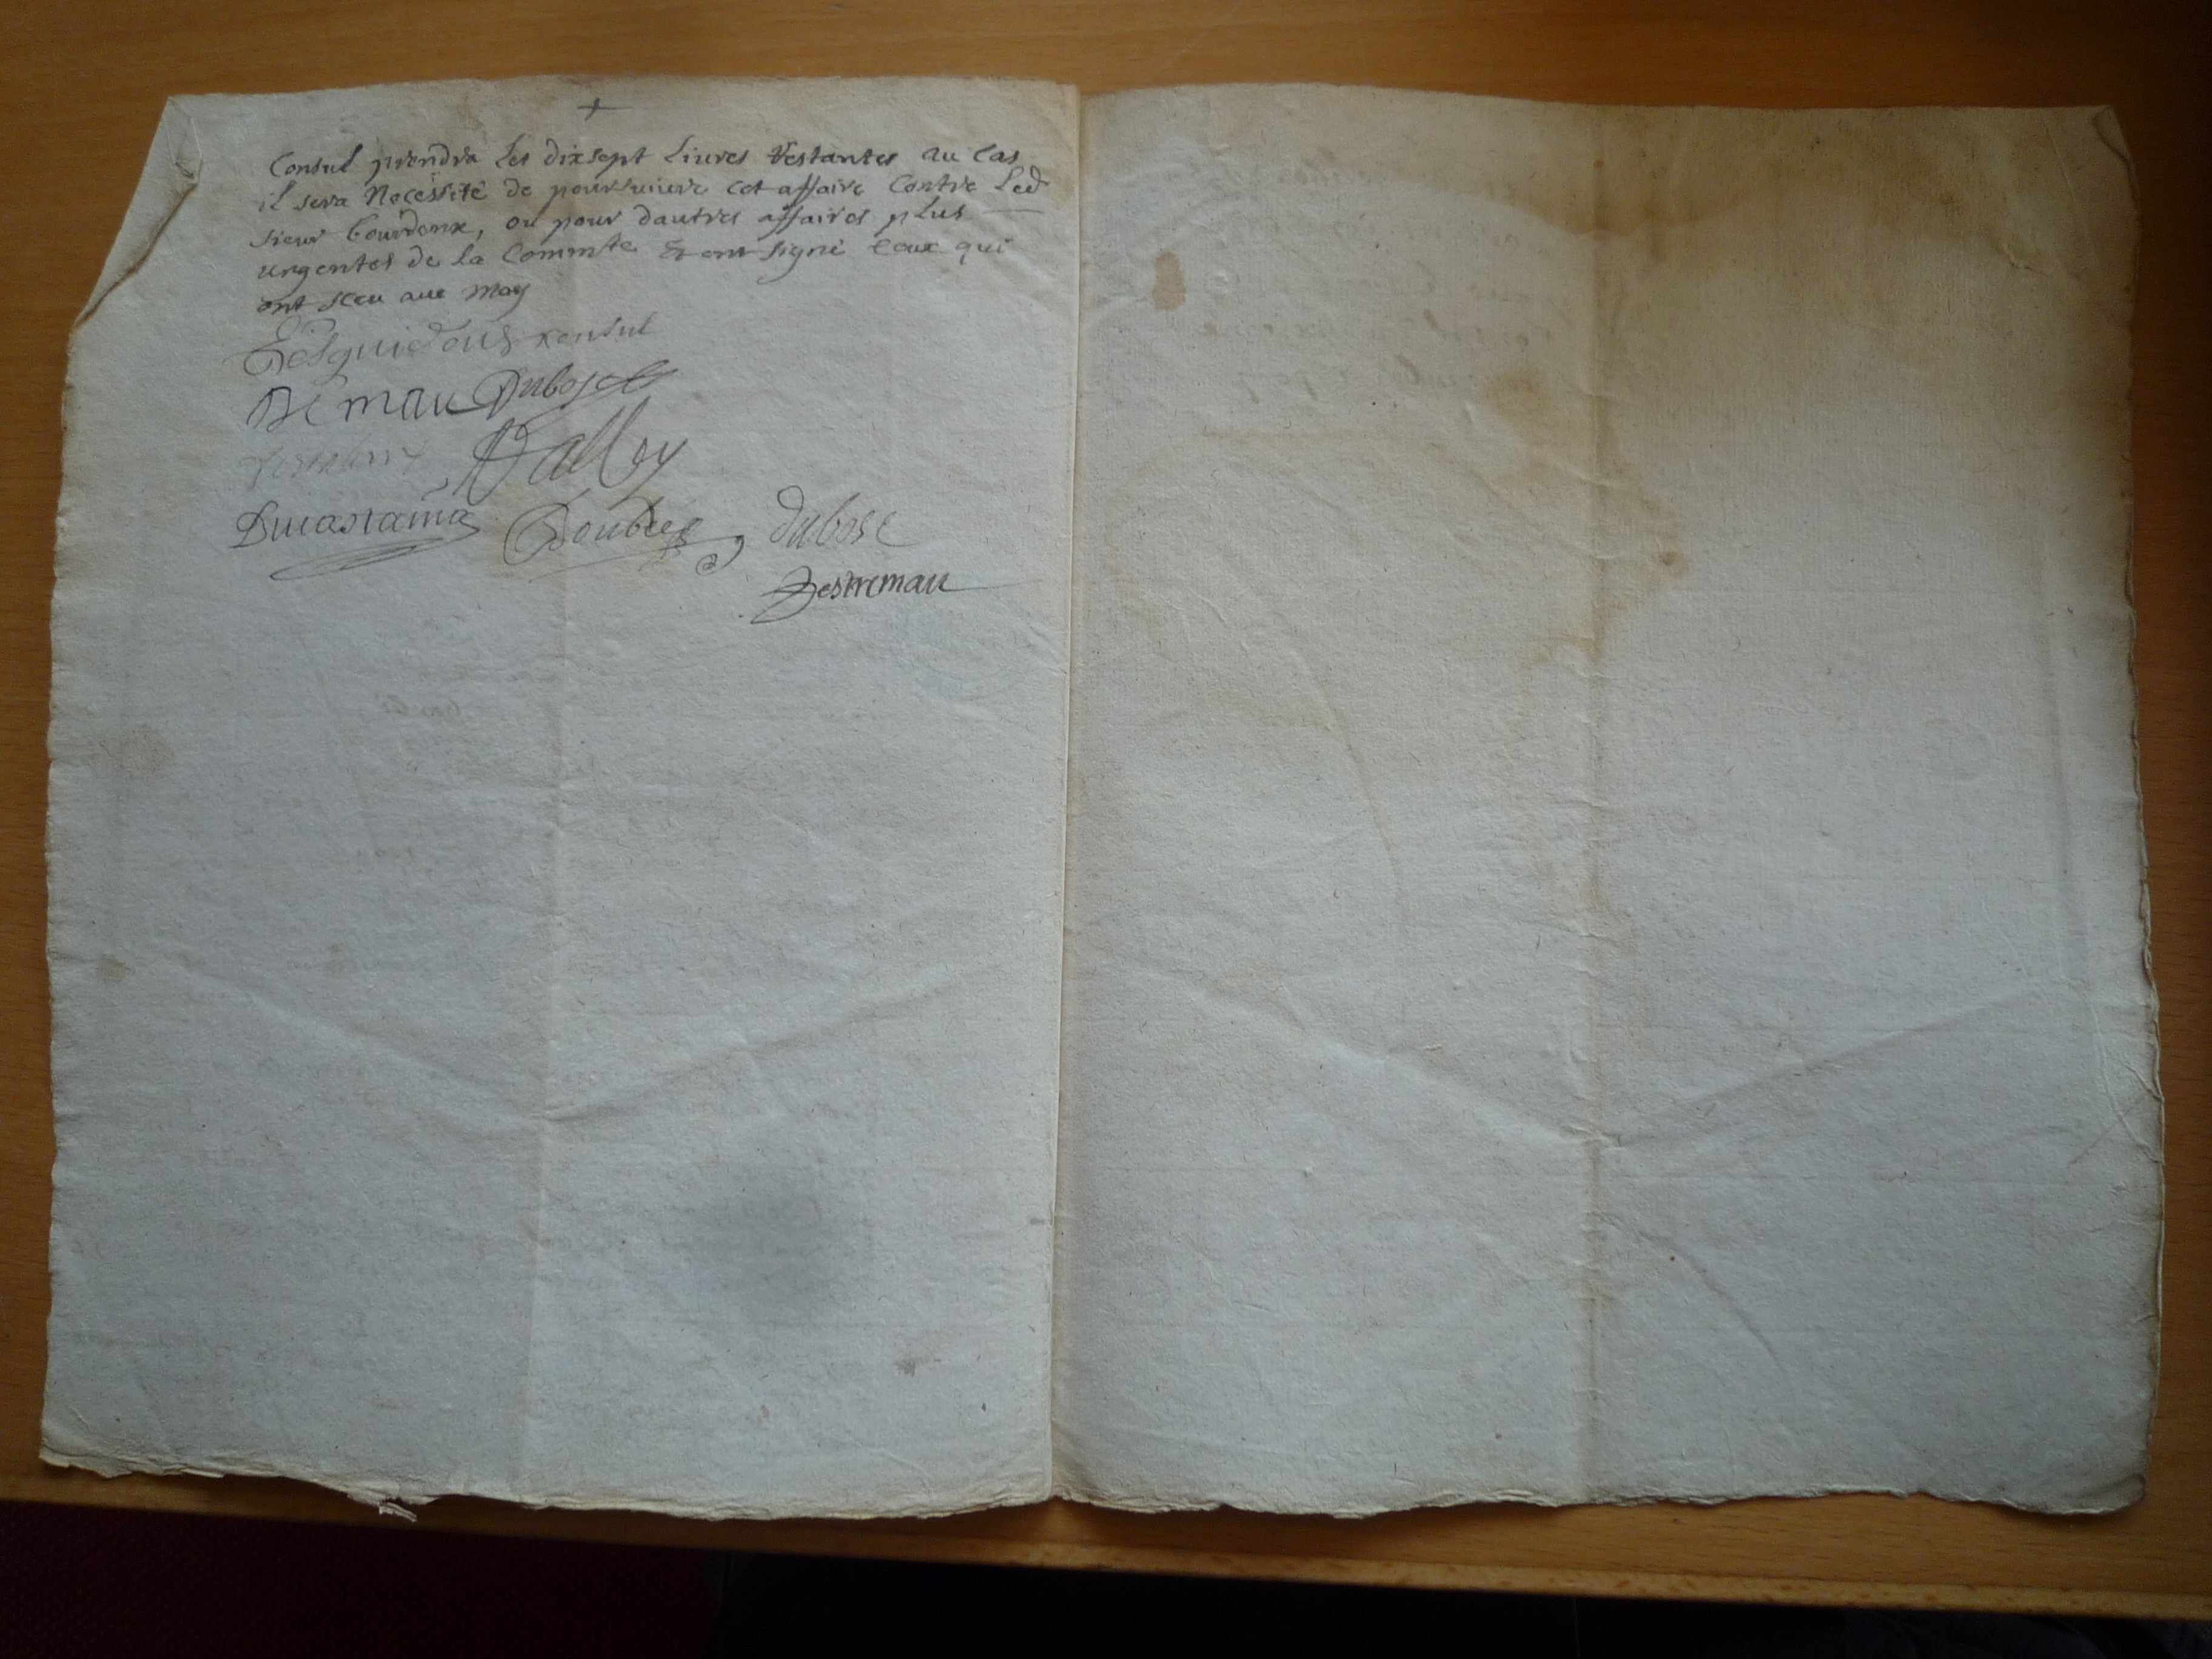 +
Consul prendra les dixsept Livres Restantes au Cas
il sera Necessité de poursuivre cet affaire Contre Led
sieur bourdenx, ou pour dautres affaires plus
urgentes de la Commte Et ont signé Ceux qui
ont sceu aue moy
consul
Deman Dubosc
Ducastaing Doubee dubosc
Destremau